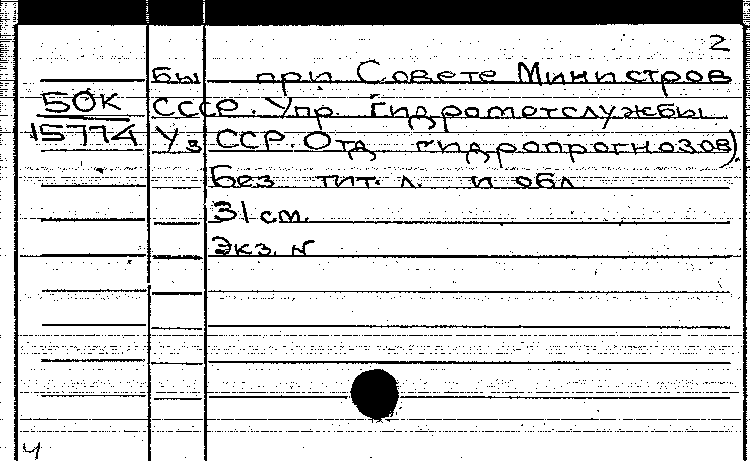 2
бы при Совете Министров
БОК СССР. Упр. Гидрометслужбы
15774 УзССР. Отд гидропрогнозов).
Без тит. л. и обл
31 см.
Экз. N
4